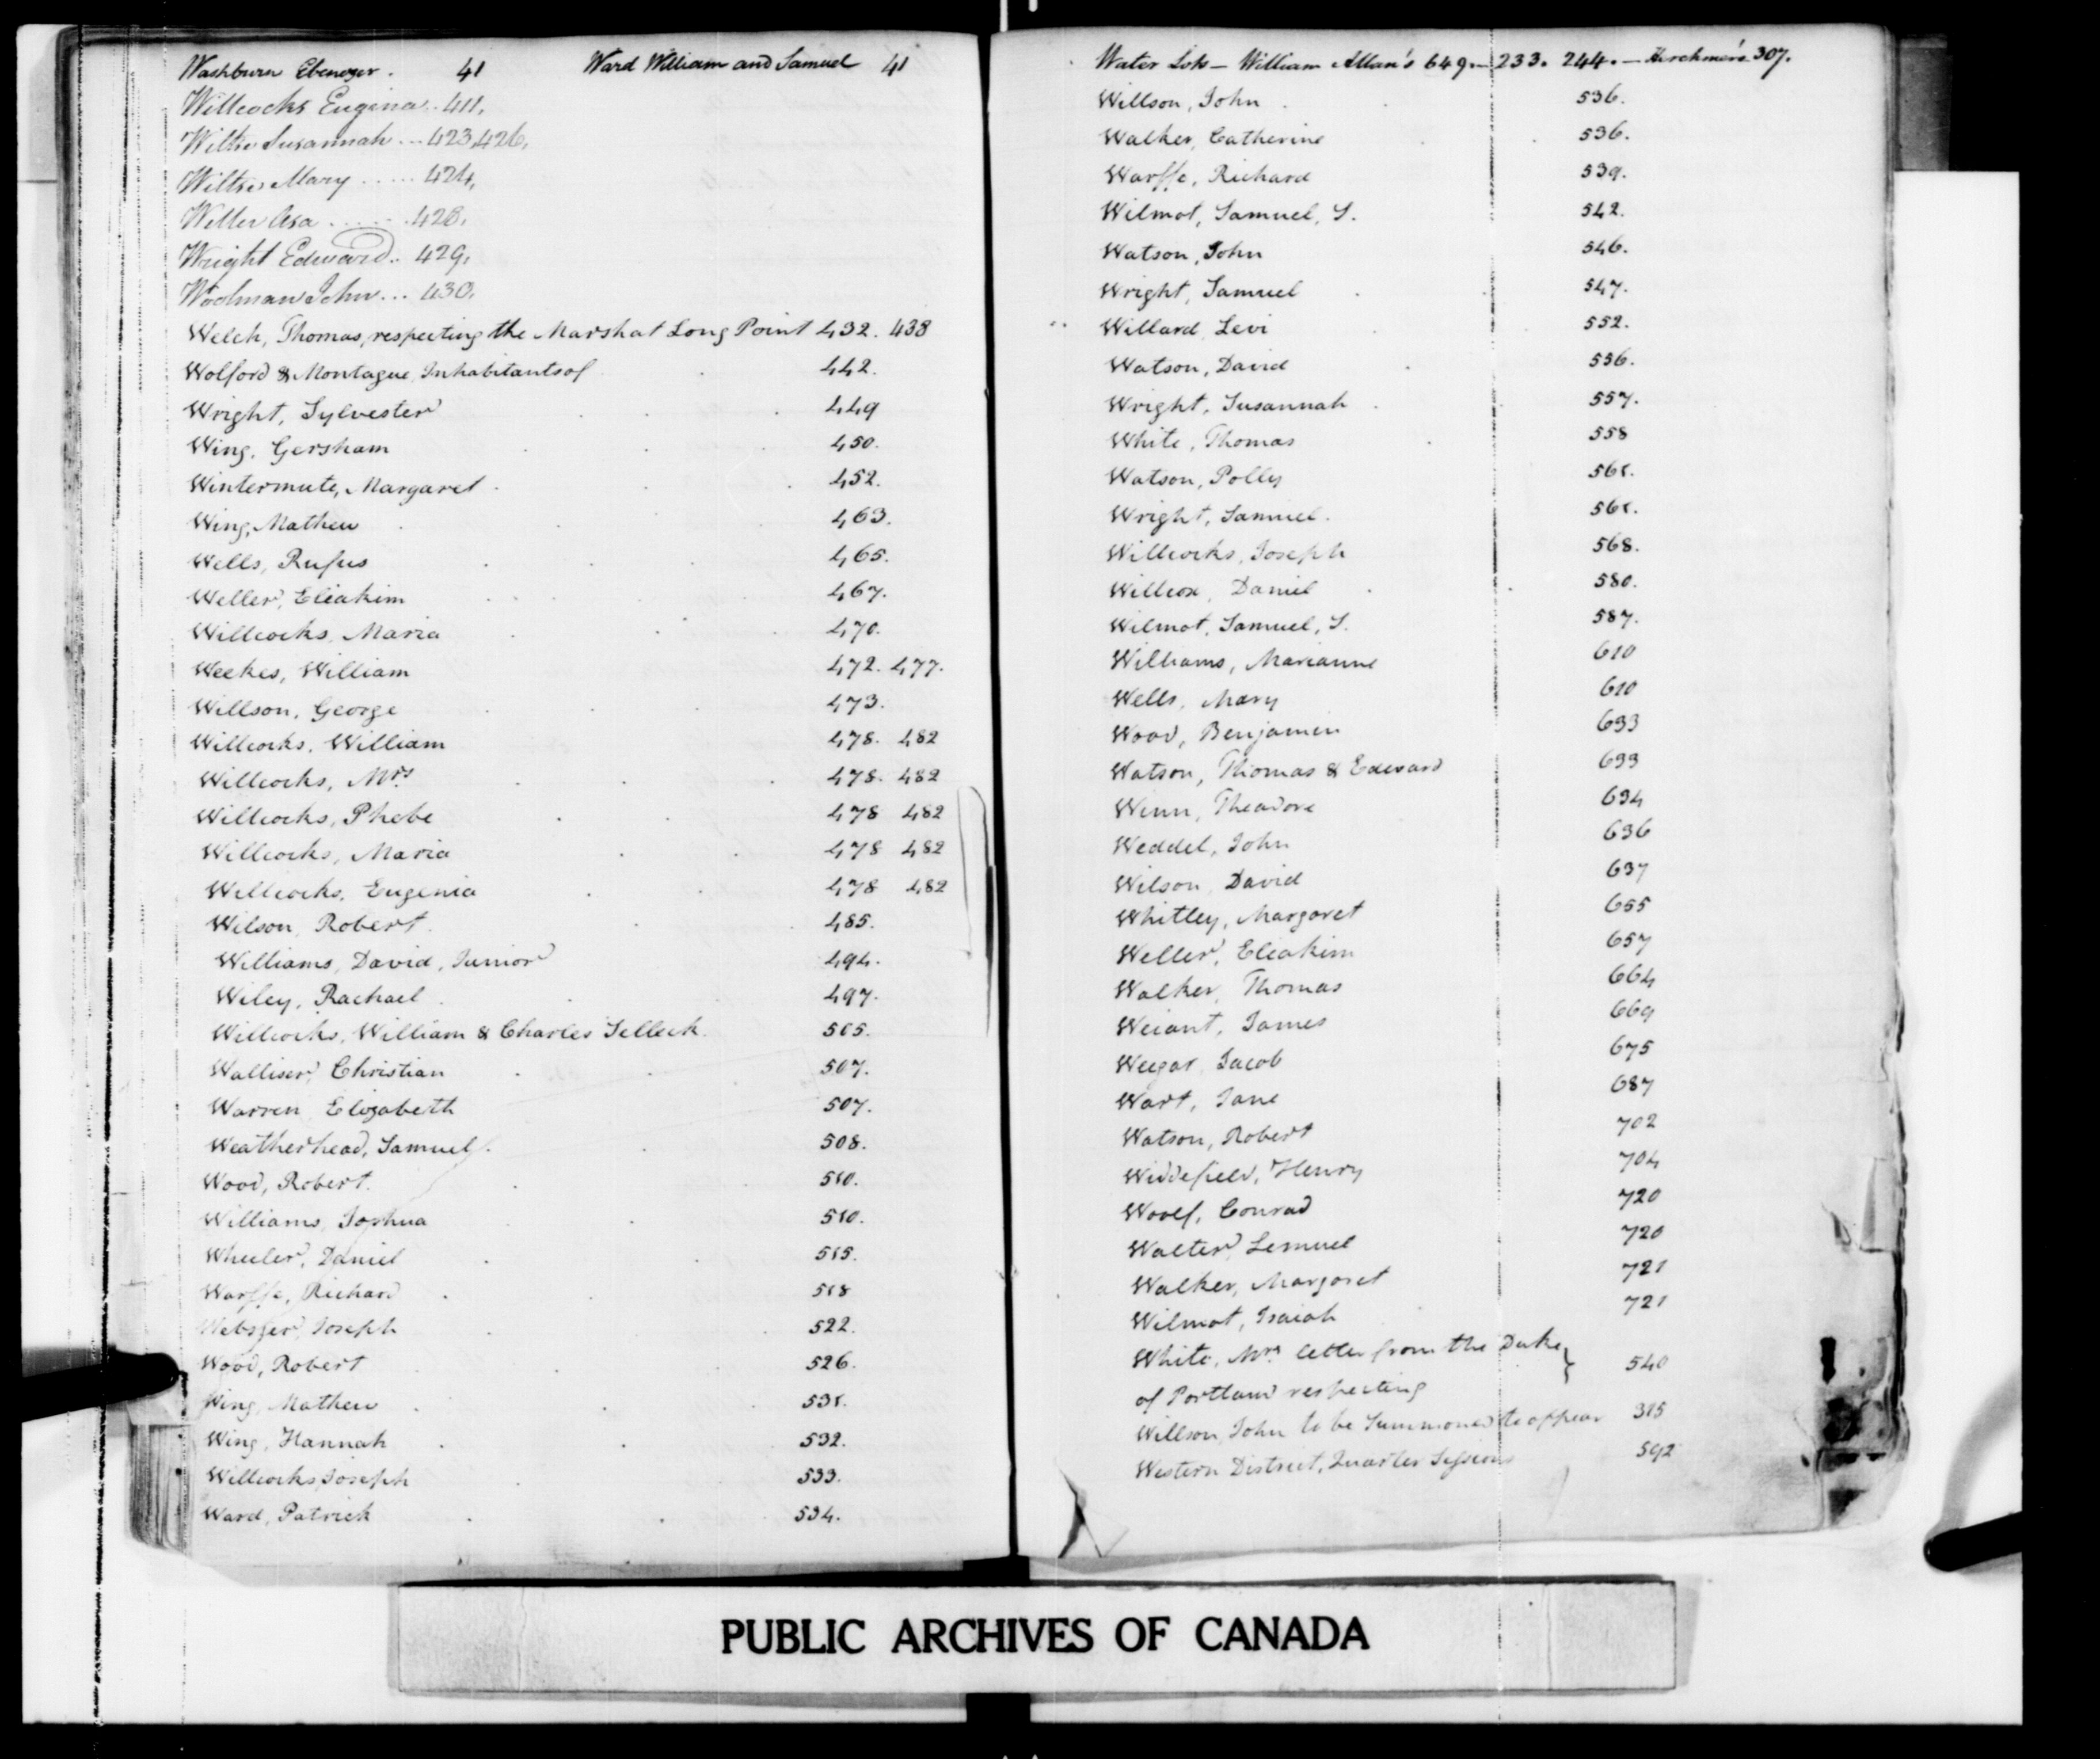 Washburn Ebenezer . 41 Ward William and Samuel 41
Willcocks Eugina .. 411.
Wiltse Susannah ... 423, 426,
Wiltse Mary ..... 424,
Weller Asa ..... 428,
Wright Edward .. 429,
Woolman John ... 430,
Welch, Thomas, respecting the Marsh at Long Point 432. 438
Wolford & Montague, Inhabitants of 442.
Wright, Sylvester 449
Wing, Gersham 450.
Wintermute, Margaret 452.
Wing, Mathew 463.
Wells, Rufus 465.
Weller, Eliakim 467.
Willcocks, Maria 470.
Weekes, William 472. 477.
Willson, George 473.
Willcocks, William 478. 482
Willcocks, Mrs. 478. 482
Willcocks, Phebe 478 482
Willcocks, Maria 478 482
Willcocks, Eugenia 478 482
Wilson, Robert 485.
Williams, David, Junior 494.
Wiley, Rachael 497.
Willcocks, William & Charles Selleck 505.
Walliser, Christian 507.
Warren, Elizabeth 507.
Weatherhead, Samuel 508.
Wood, Robert 510.
Williams, Joshua 510.
Wheeler, Daniel 515.
Warffe, Richard 518
Webster, Joseph 522.
Wood, Robert 526.
Wing, Mathew 531.
Wing, Hannah 532.
Willcocks, Joseph 533.
Ward, Patrick 534.
Water Lots - William Allan's 649. - 233. 244. - Kirchmer's 307.
Willson, John 536.
Walker, Catherine 536.
Warffe, Richard 539.
Wilmot, Samuel, S. 542.
Watson, John 546.
Wright, Samuel 547.
Willard, Levi 552.
Watson, David 556.
Wright, Susannah 557.
White, Thomas 558
Watson, Polly 561.
Wright, Samuel 561.
Willcocks, Joseph 568.
Willcox, Daniel 580.
Wilmot, Samuel, S. 587.
Williams, Marianne 610
Wells, Mary 610
Wood, Benjamin 633
Watson, Thomas & Edward 633
Winn, Theadore 634
Weddel, John 636
Wilson, David 637
Whitley, Margaret 655
Weller, Eliakim 657
Walker, Thomas 664
Weiant, James 669
Weegar, Jacob 675
Wart, Jane 687
Watson, Robert 702
Widdefield, Henry 704
Woolf, Conrad 720
Walter, Lemuel 720
Walker, Margaret 721
Wilmot, Isaiah 721
White, Mrs. letter from the Duke } 540
of Portland respecting
Willson, John to be Summoned to appear 315
Western District, Quarter Sessions 592
PUBLIC ARCHIVES OF CANADA